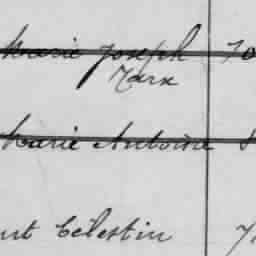 Marie Joseph 70
Marx
Marie Antoine 8
nt Célestin 7